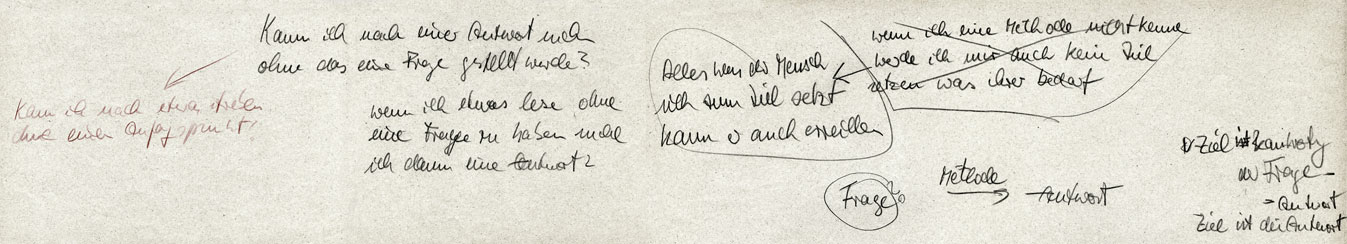 Kann ich nach einer Antwort suchen
ohne das eine Frage gestellt wurde?
Kann ich nach etwas streben
ohne einen Anfangspunkt?
wenn ich etwas lese ohne
eine Frage zu haben suche
ich dann eine Antwort?
Alles was der Mensch
sich zum Ziel setzt
kann er auch erreichen
wenn ich eine Methode nicht kenne
werde ich mir auch kein Ziel
setzen was ihrer bedarf
Frage?
Methode
Antwort
Ziel ist
der Frage
Antwort
Ziel ist die Antwort